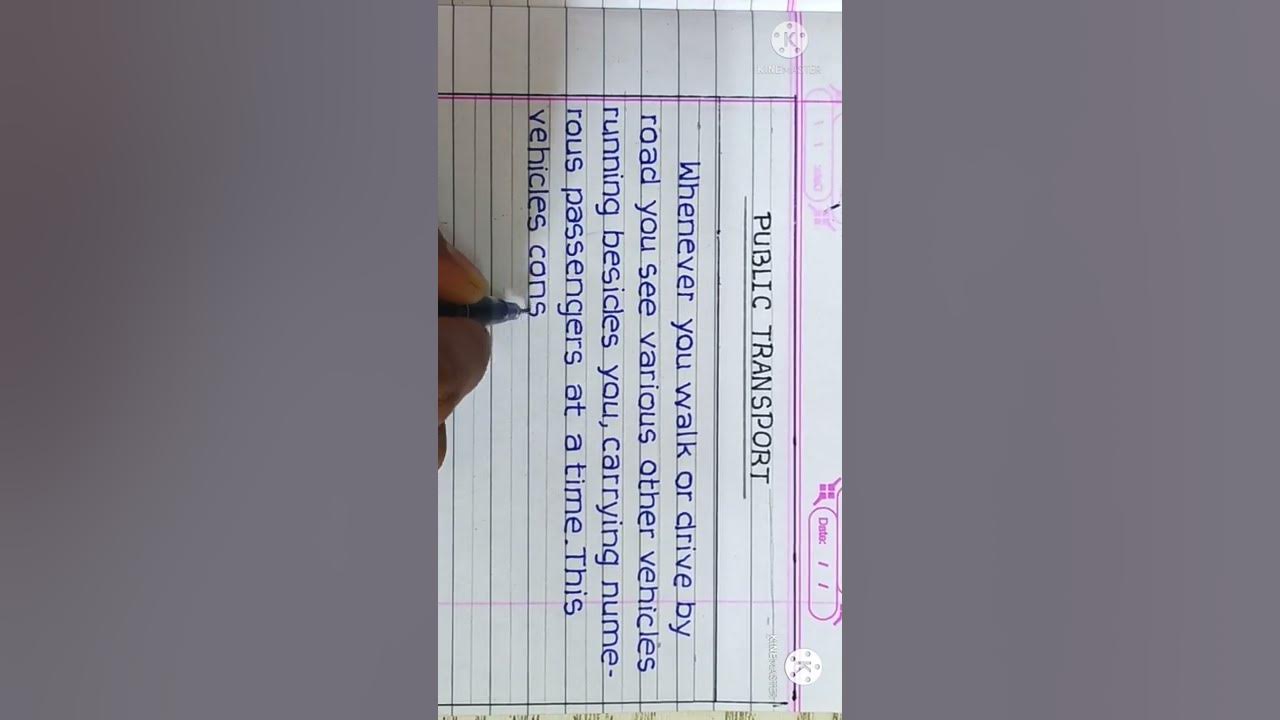 PUBLIC TRANSPORT
Whenever you walk or drive by
road you see various other vehicles
running besides you, carrying nume-
rous passengers at a time. This
vehicles cons
Date: / /
KINEMASTER
KINEMASTER